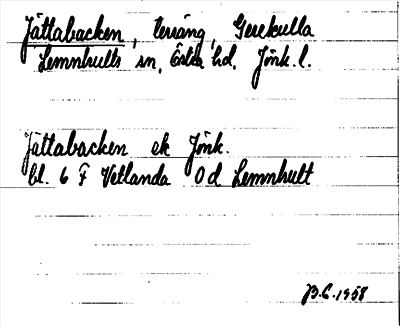 Jättabacken, terräng, Gerekulla
Lemnhults sn, Östra hd. Jönk. l.
Jättabacken ek Jönk.
bl. 6 F Vetlanda 0 d Lemnhult
B.C. 1958